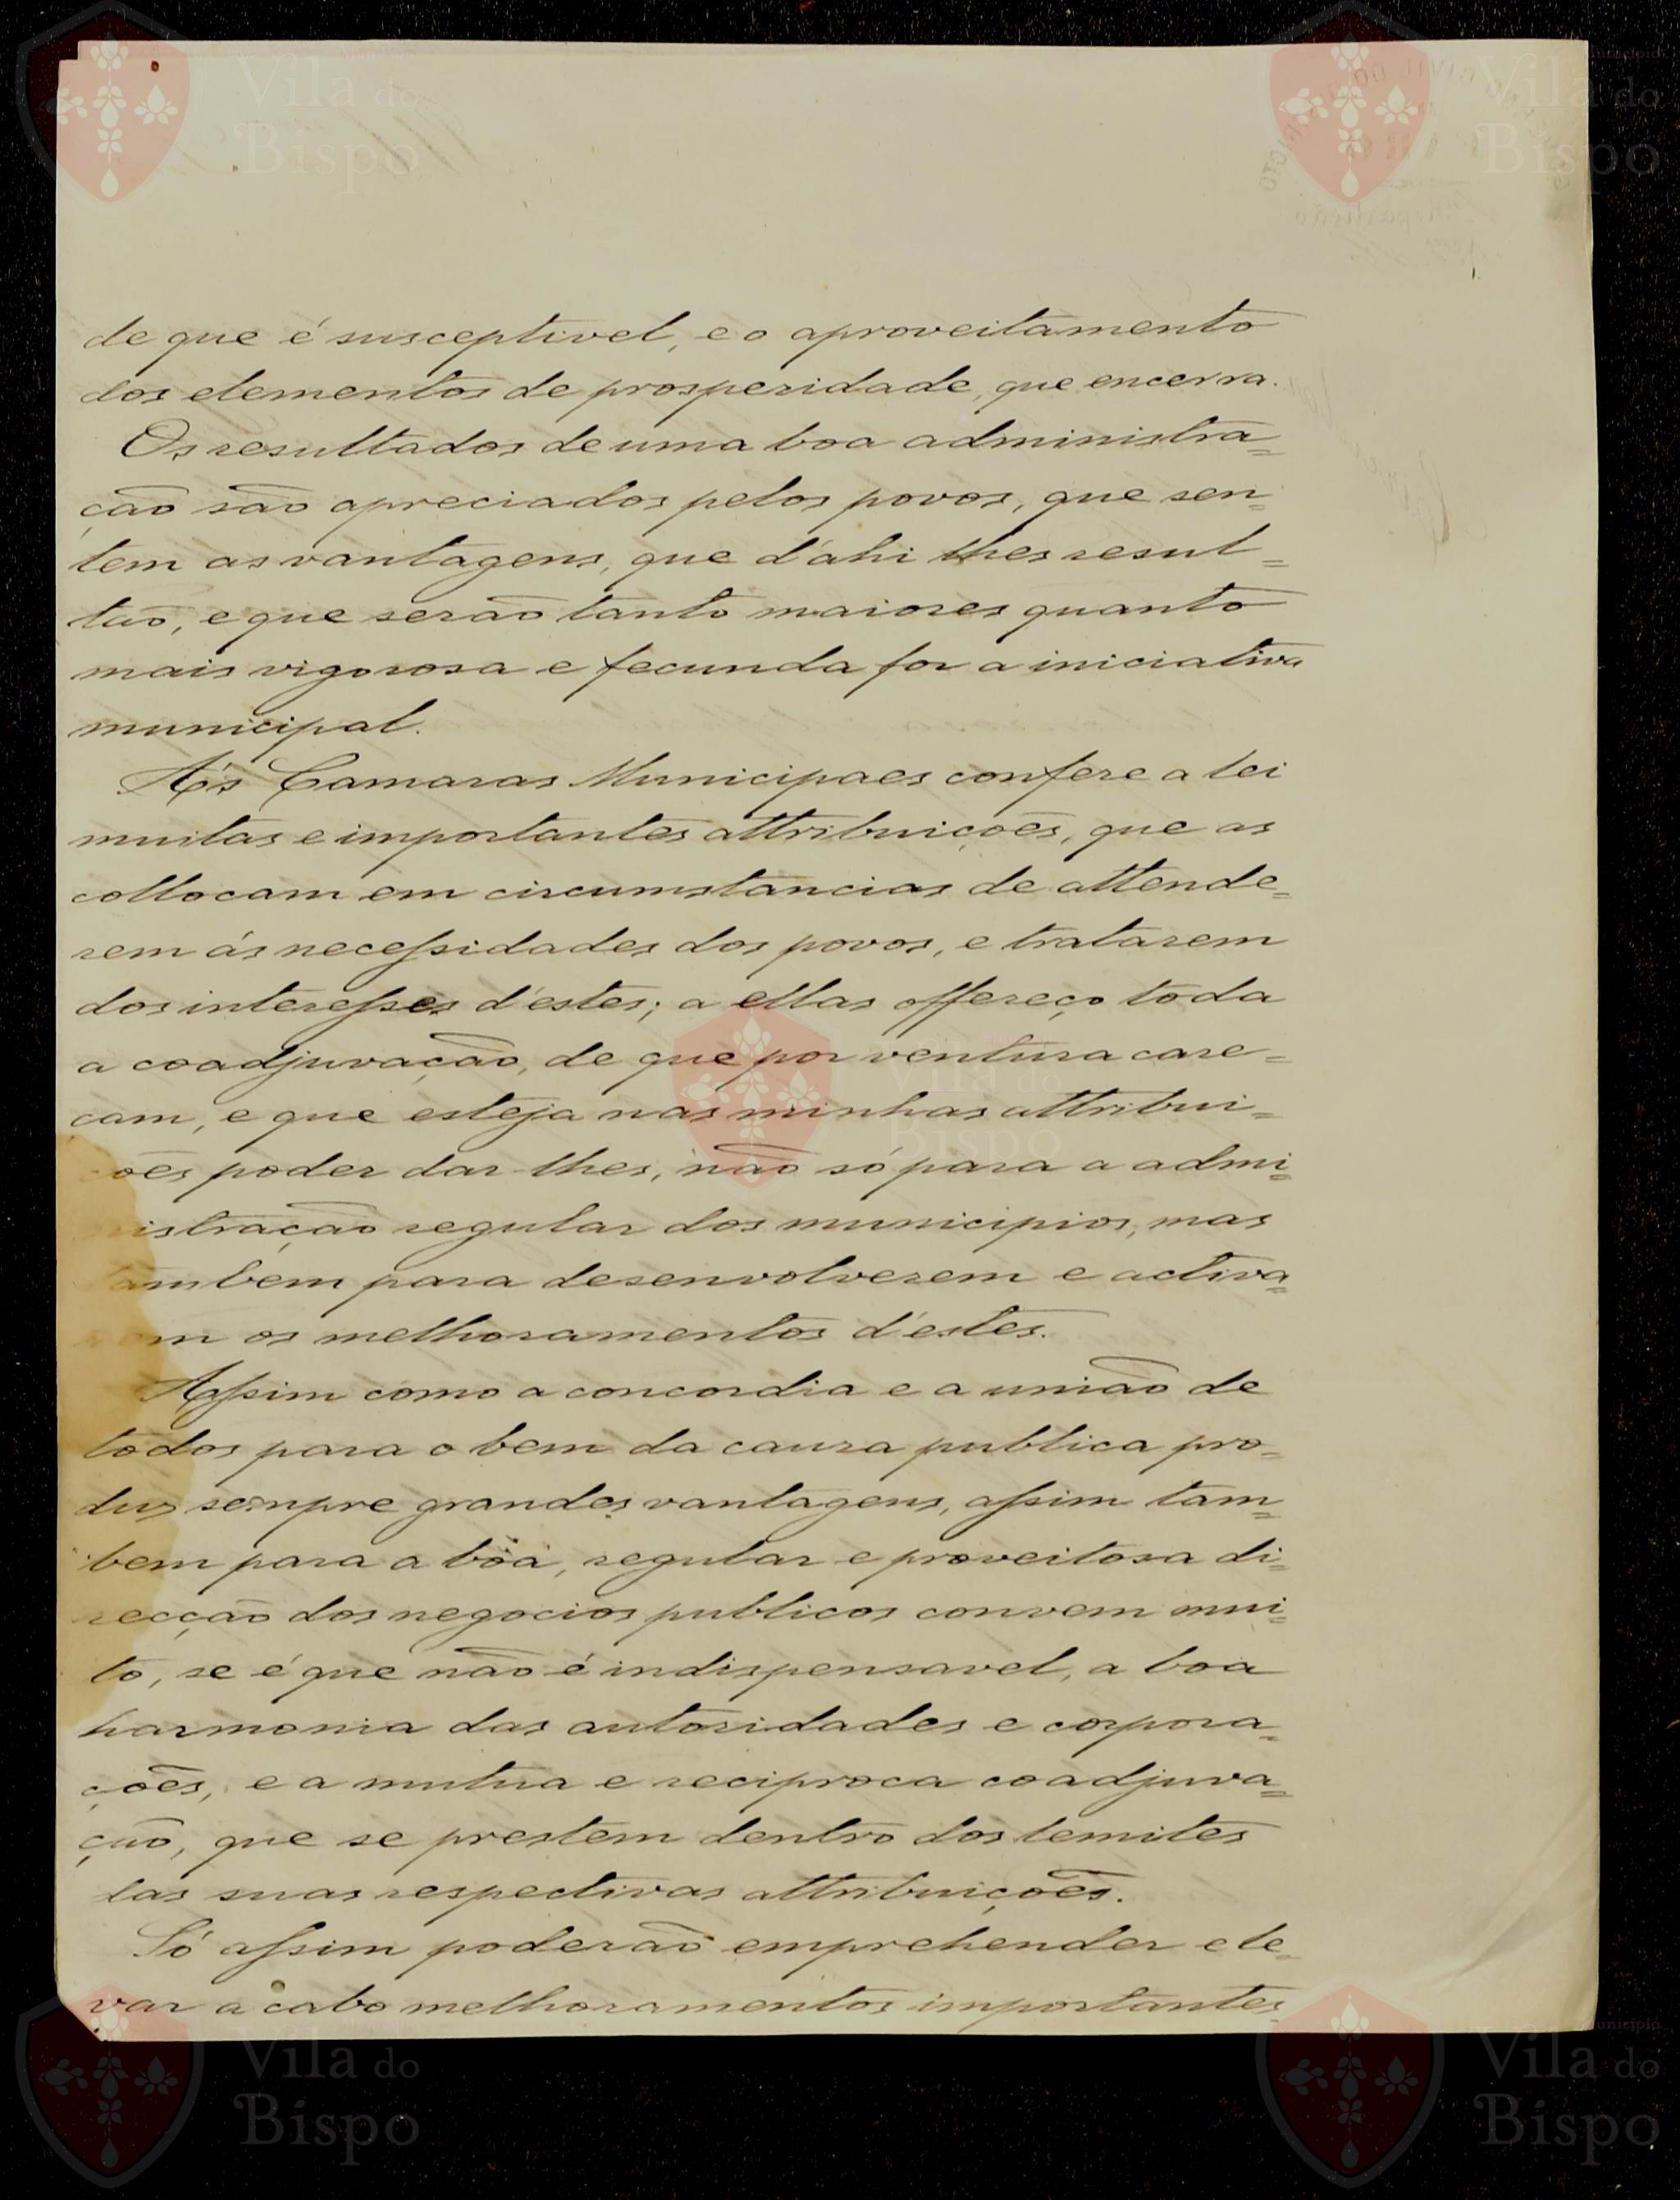 Vila do
Bispo
Vila do
Bispo
de que é susceptivel, e o aproveitamento
dos elementos de prosperidade, que encerra.
Os resultados de uma boa administra=
ção são apreciados pelos povos, que sen=
tem as vantagens, que d'ahi lhes resul=
tão, e que serão tanto maiores quanto
mais vigorosa e fecunda for a iniciativa
municipal.
Ás Camaras Municipaes confere a lei
muitas e importantes attribuições, que as
collocam em circumstancias de attende=
rem ás necessidades dos povos, e tratarem
dos interesses d'estes; a ellas offereço toda
a coadjuvação, de que por ventura care=
cam, e que esteja nas minhas attribui=
ões poder dar lhes, não só para a admi=
istração regular dos municipios, mas
ambem para desenvolverem e activa=
m os melhoramentos d'estes.
Assim como a concordia e a união de
todos para o bem da causa publica pro=
duz sempre grandes vantagens, assim tam=
bem para a bôa, regular e proveitosa di=
recção dos negocios publicos convem mui=
to, se é que não é indispensavel, a boa
harmonia das autoridades e corpora=
ções, e a mutua e reciproca coadjuva=
ção, que se prestem dentro dos lemites
das suas respectivas attribuições.
Só assim poderão emprehender e le=
var a cabo melhoramentos importantes
Vila do
Bispo
Vila do
Bispo
Vila do
Bispo